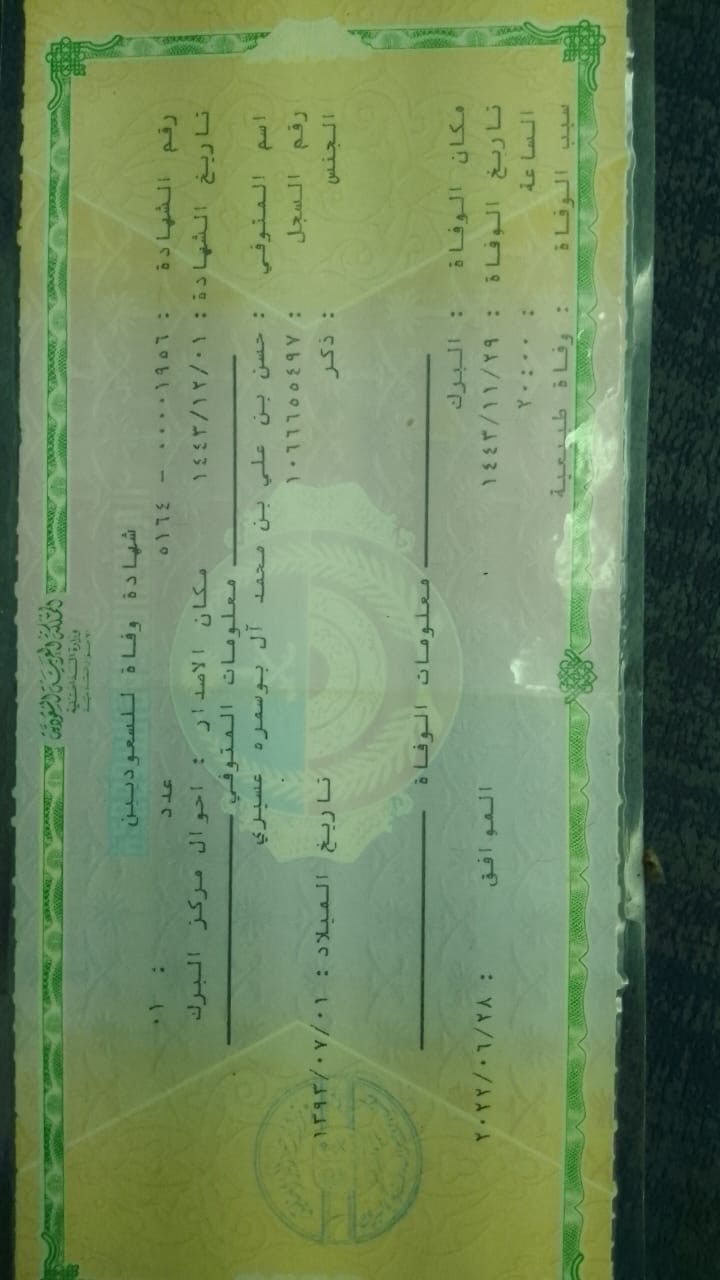 المملكة العربية السعودية
وزارة الداخلية
الأحوال المدنية
شهادة وفاة للسعوديين
رقم الشهادة : ٠٠٠٠١٩٥٦ - ٥١٦٤ عدد : ٠١
تاريخ الشهادة : ١٤٤٣/١٢/٠١ مكان الاصدار : احوال مركز البرك
معلومات المتوفي
اسم المتوفي : حسن بن علي بن محمد آل بوسمره عسيري
رقم السجل : ١٠٦٦٦٥٥٤٩٧
الجنس : ذكر تاريخ الميلاد : ١٣٩٣/٠٧/٠١
معلومات الوفاة
مكان الوفاة : البرك
تاريخ الوفاة : ١٤٤٣/١١/٢٩ الموافق : ٢٠٢٢/٠٦/٢٨
الساعة : ٢٠:٠٠
سبب الوفاة : وفاة طبيعية